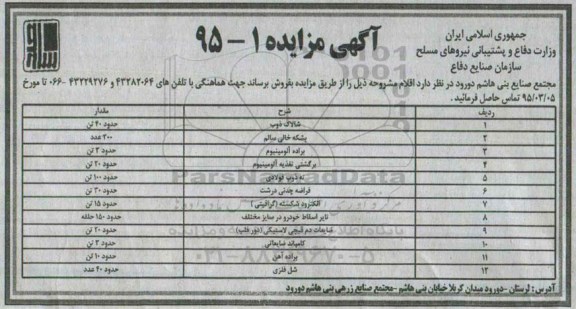 جمهوری اسلامی ایران
وزارت دفاع و پشتیبانی نیروهای مسلح
سازمان صنایع دفاع
آگهی مزایده ۱ - ۹۵
مجتمع صنایع بنی هاشم دورود در نظر دارد اقلام مشروحه ذیل را از طریق مزایده بفروش برساند جهت هماهنگی با تلفن های ۴۳۲۸۲۰۶۴ و ۴۳۲۲۹۳۷۶ -۰۶۶ تا مورخ
۹۵/۰۳/۰۵ تماس حاصل فرمائید.
ردیف شرح مقدار
۱ شالاک ذوب حدود ۴۰ تن
۲ بشکه خالی سالم ۳۰۰ عدد
۳ براده آلومینیوم حدود ۳ تن
۴ برگشتی تغذیه آلومینیوم حدود ۲۰ تن
۵ ته ذوب فولادی حدود ۱۰۰ تن
۶ قراضه چدنی درشت حدود ۳۰ تن
۷ الکترود شکسته (گرافیتی) حدود ۱۵ تن
۸ تایر اسقاط خودرو در سایز مختلف حدود ۱۵۰ حلقه
۹ ضایعات دم قیچی لاستیکی (دور فلپ) حدود ۲۰ تن
۱۰ کامپاند ضایعاتی حدود ۳ تن
۱۱ براده آهن حدود ۱۰ تن
۱۲ شل فلزی حدود ۴۰ عدد
آدرس : لرستان -دورود میدان کربلا خیابان بنی هاشم -مجتمع صنایع زرهی بنی هاشم دورود
ParsNamadData
۰۲۱-۸۸۳۴۹۶۷۰-۵